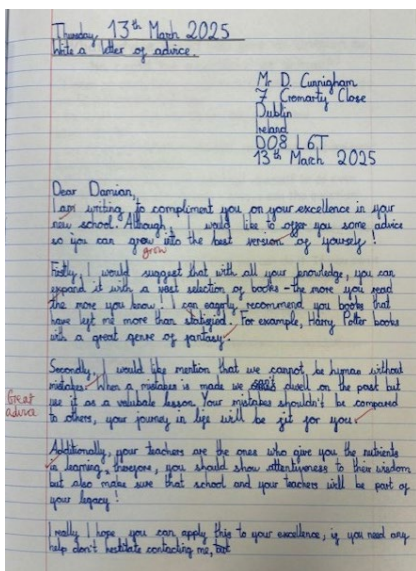 Thursday, 13th March 2025
Write a letter of advice.
Mr D. Cunnigham
7 Cromarty Close
Dublin
Ireland
D08 L6T
13th March 2025
Dear Damian,
I am writing to compliment you on your excellence in your
new school. Although, I would like to offer you some advice
so you can grow into the best version of yourself!
grow
Firstly, I would suggest that with all your knowledge, you can
expand it with a vast selection of books - the more you read
the more you know! I can eagerly recommend you books that
have left me more than statisfied. For example, Harry Potter books
with a great genre of fantasy.
Secondly, I would like mention that we cannot be human without
mistakes. When a mistakes is made we dwell on the past but
use it as a valubale lesson. Your mistakes shouldn't be compared
Great
advice
to others, your journey in life will be fit for you.
Additionally, your teachers are the ones who give you the nutrients
in learning, therefore, you should show attentyeness to their wisdom
but also make sure that school and your teachers will be part of
your legacy!
I really I hope you can apply this to your excellence, if you need any
help don't hestitate contacting me, but